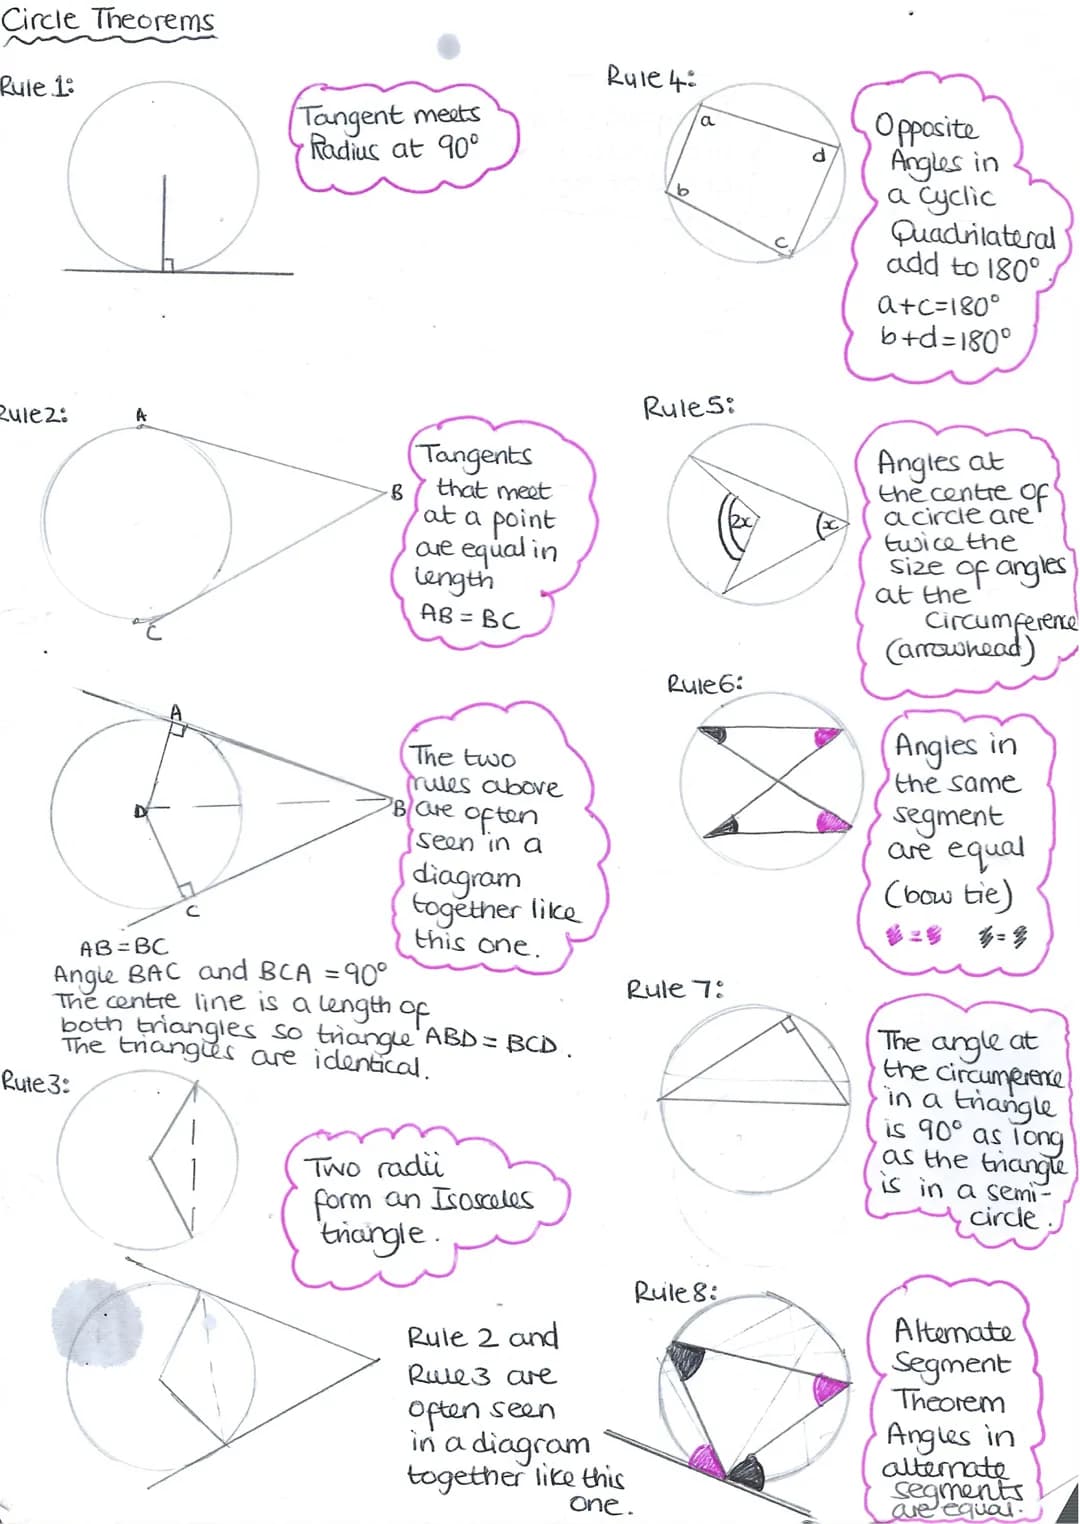 Circle Theorems
Rule 1:
Tangent meets
Radius at 90°
Rule 2:
A
B
C
Tangents
that meet
at a point
are equal in
length
AB = BC
A
D
B
C
The two
rules above
are often
seen in a
diagram
together like
this one.
AB = BC
Angle BAC and BCA = 90°
The centre line is a length of
both triangles so triangle ABD = BCD.
The triangles are identical.
Rule 3:
Two radii
form an Isosceles
triangle.
Rule 2 and
Rule 3 are
often seen
in a diagram
together like this
one.
Rule 4:
a
d
b
c
Opposite
Angles in
a cyclic
Quadrilateral
add to 180°.
a+c=180°
b+d=180°
Rule 5:
2x
x
Angles at
the centre of
a circle are
twice the
size of angles
at the
circumference
(arrowhead)
Rule 6:
Angles in
the same
segment
are equal
(bow tie)
= =
Rule 7:
The angle at
the circumference
in a triangle
is 90° as long
as the triangle
is in a semi-
circle.
Rule 8:
Alternate
Segment
Theorem
Angles in
alternate
segments
are equal.